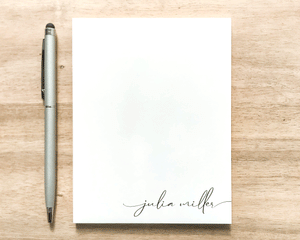 julia miller